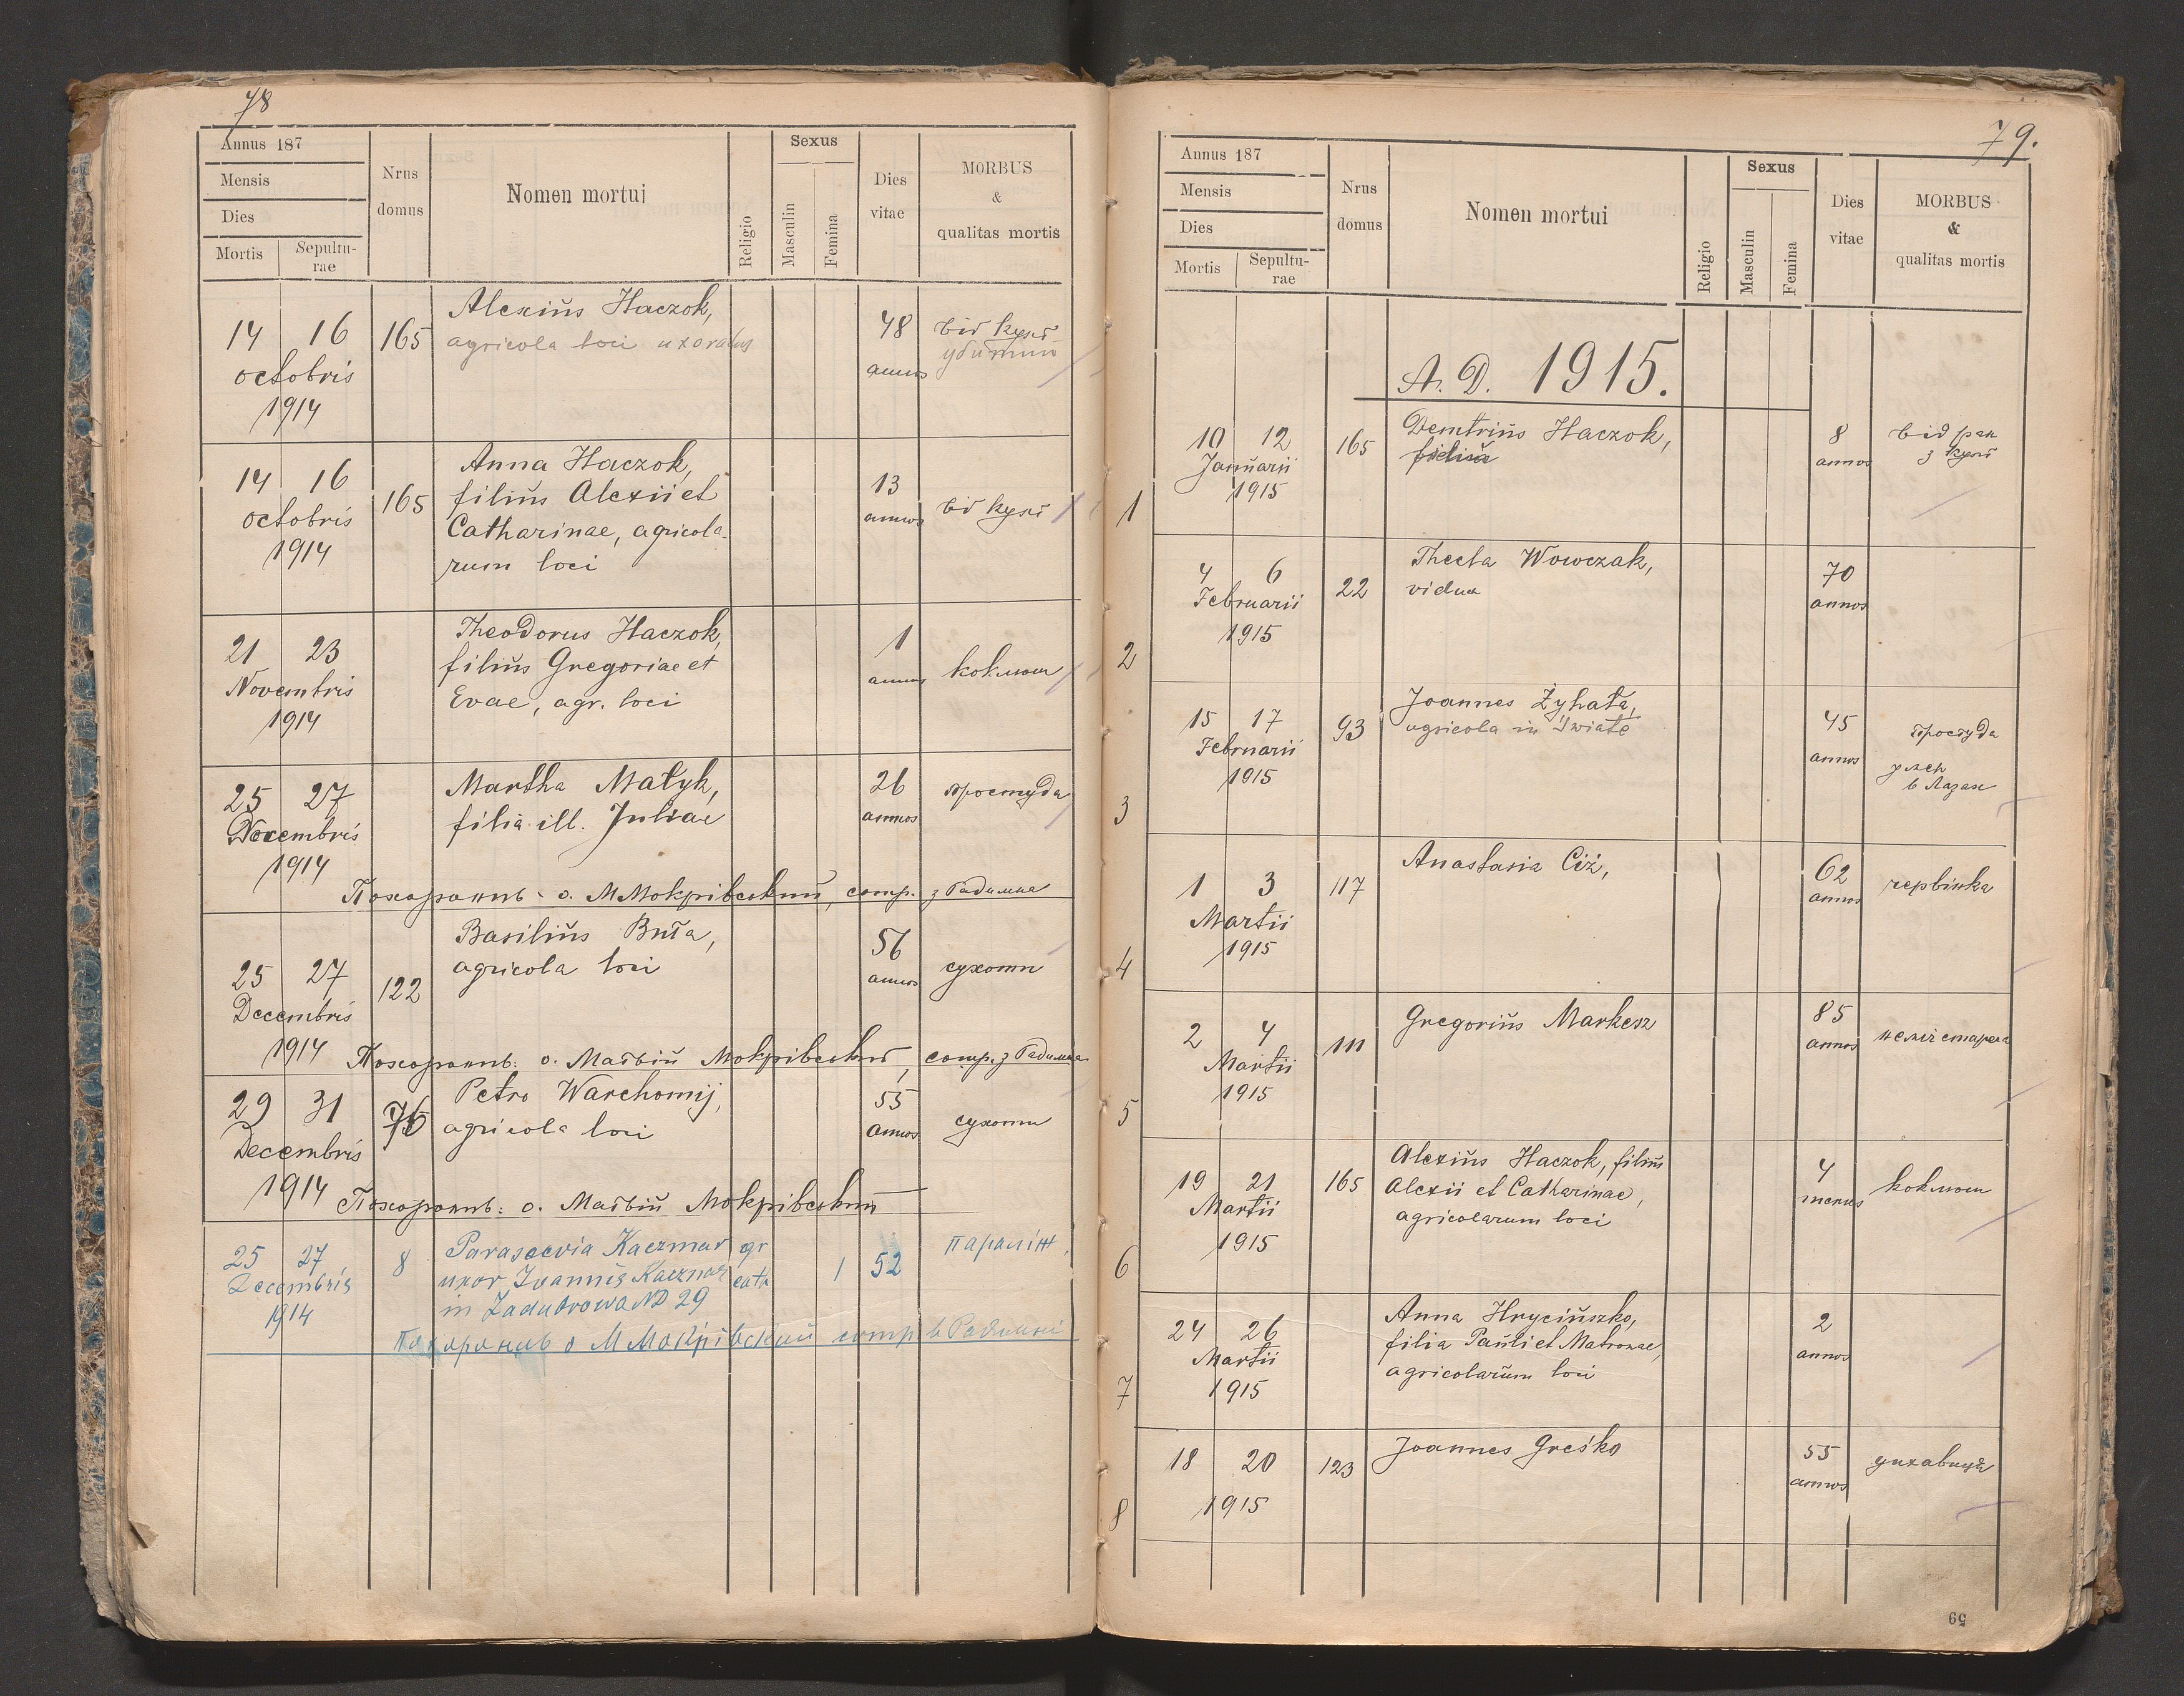 78
Annus 187
Mensis
Dies
Mortis
Sepultu-
rae
Nrus
domus
Nomen mortui
Religio
Sexus
Masculin
Femina
Dies
vitae
MORBUS
&
qualitas mortis
14 16 165 Alexiŭs Haczok, 48 від кулї
octobris agricola loci uxoratus annos убитий
1914
14 16 165 Anna Haczok, 13 від кулї
octobris filiŭs Alexii et annos
1914 Catharinae, agricola-
rum loci
21 23 Theodorus Haczok, 1 коклюш
Novembris filiŭs Gregoriae et annus
1914 Evae, agr. loci
25 27 Martha Małyk, 26 простуда
Decembris filia ill. Juliae annos
1914
Похоронивъ о. М Мокрівский, сотр. з Радимна
25 27 122 Basiliŭs Buła, 56 сухоти
Decembris agricola loci annos
1914
Похоронивъ: о. Матвій Мокрівский, сотр. з Радимна
29 31 Petro Warchomij, 55 сухоти
Decembris agricola loci annos
1914
Похоронивъ: о. Матвій Мокрівский
25 27 8 Parascevia Kaczmar gr 1 52 параліж
Decembris uxor Ioannis Kaczmar cath
1914 in Zadubrowa ND 29
Похоронив о М Мокрівский сотр в Радимні
79.
Annus 187
Mensis
Dies
Mortis
Sepultu-
rae
Nrus
domus
Nomen mortui
Religio
Sexus
Masculin
Femina
Dies
vitae
MORBUS
&
qualitas mortis
A. D. 1915.
10 12 165 Demtriŭs Haczok, 8 від ран
Januarii annos з кулї
1915
1
4 6 22 Thecla Wowczak, 70
Februarii vidua annos
1915
2
15 17 93 Joannes Żyhała, 45 простуда
Februarii agricola in annos
1915
3
1 3 117 Anastasia Ciż, 62 червінка
Martii annos
1915
4
2 4 111 Gregoriŭs Markesz 85
Martii annos
1915
5
19 21 165 Alexiŭs Haczok, filiŭs 4 коклюш
Martii Alexii et Catharinae, menses
1915 agricolarum loci
6
24 26 Anna Hryciŭszko, 2
Martii filia Paŭli et Matronae, annos
1915 agricolarŭm loci
7
18 20 123 Joannes Greśko 55
annos
1915
8
59